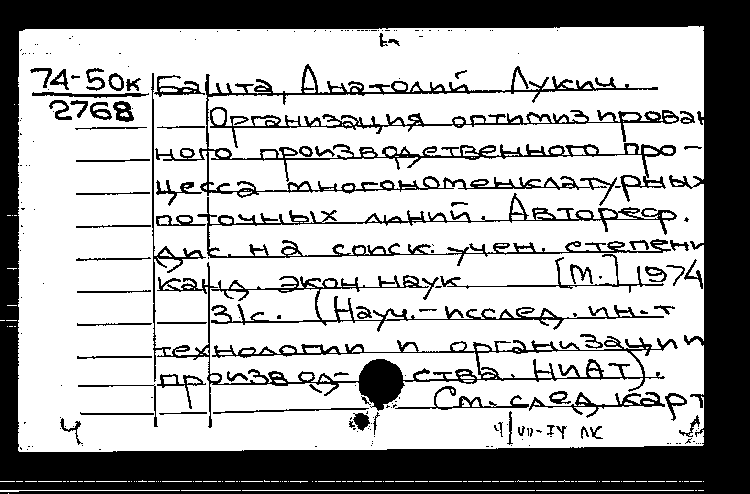 74-50к Башта, Анатолий Лукич.
2768 Организация оптимизирован
ного производственного про-
цесса многономенклатурных
поточных линий. Автореф.
дис. на соиск. учен. степени
канд. экон. наук. [М.], 1974
31с. (Науч.-исслед. ин-т
технологии и организации
производ- ства. НИАТ).
См. след. карт
Ч